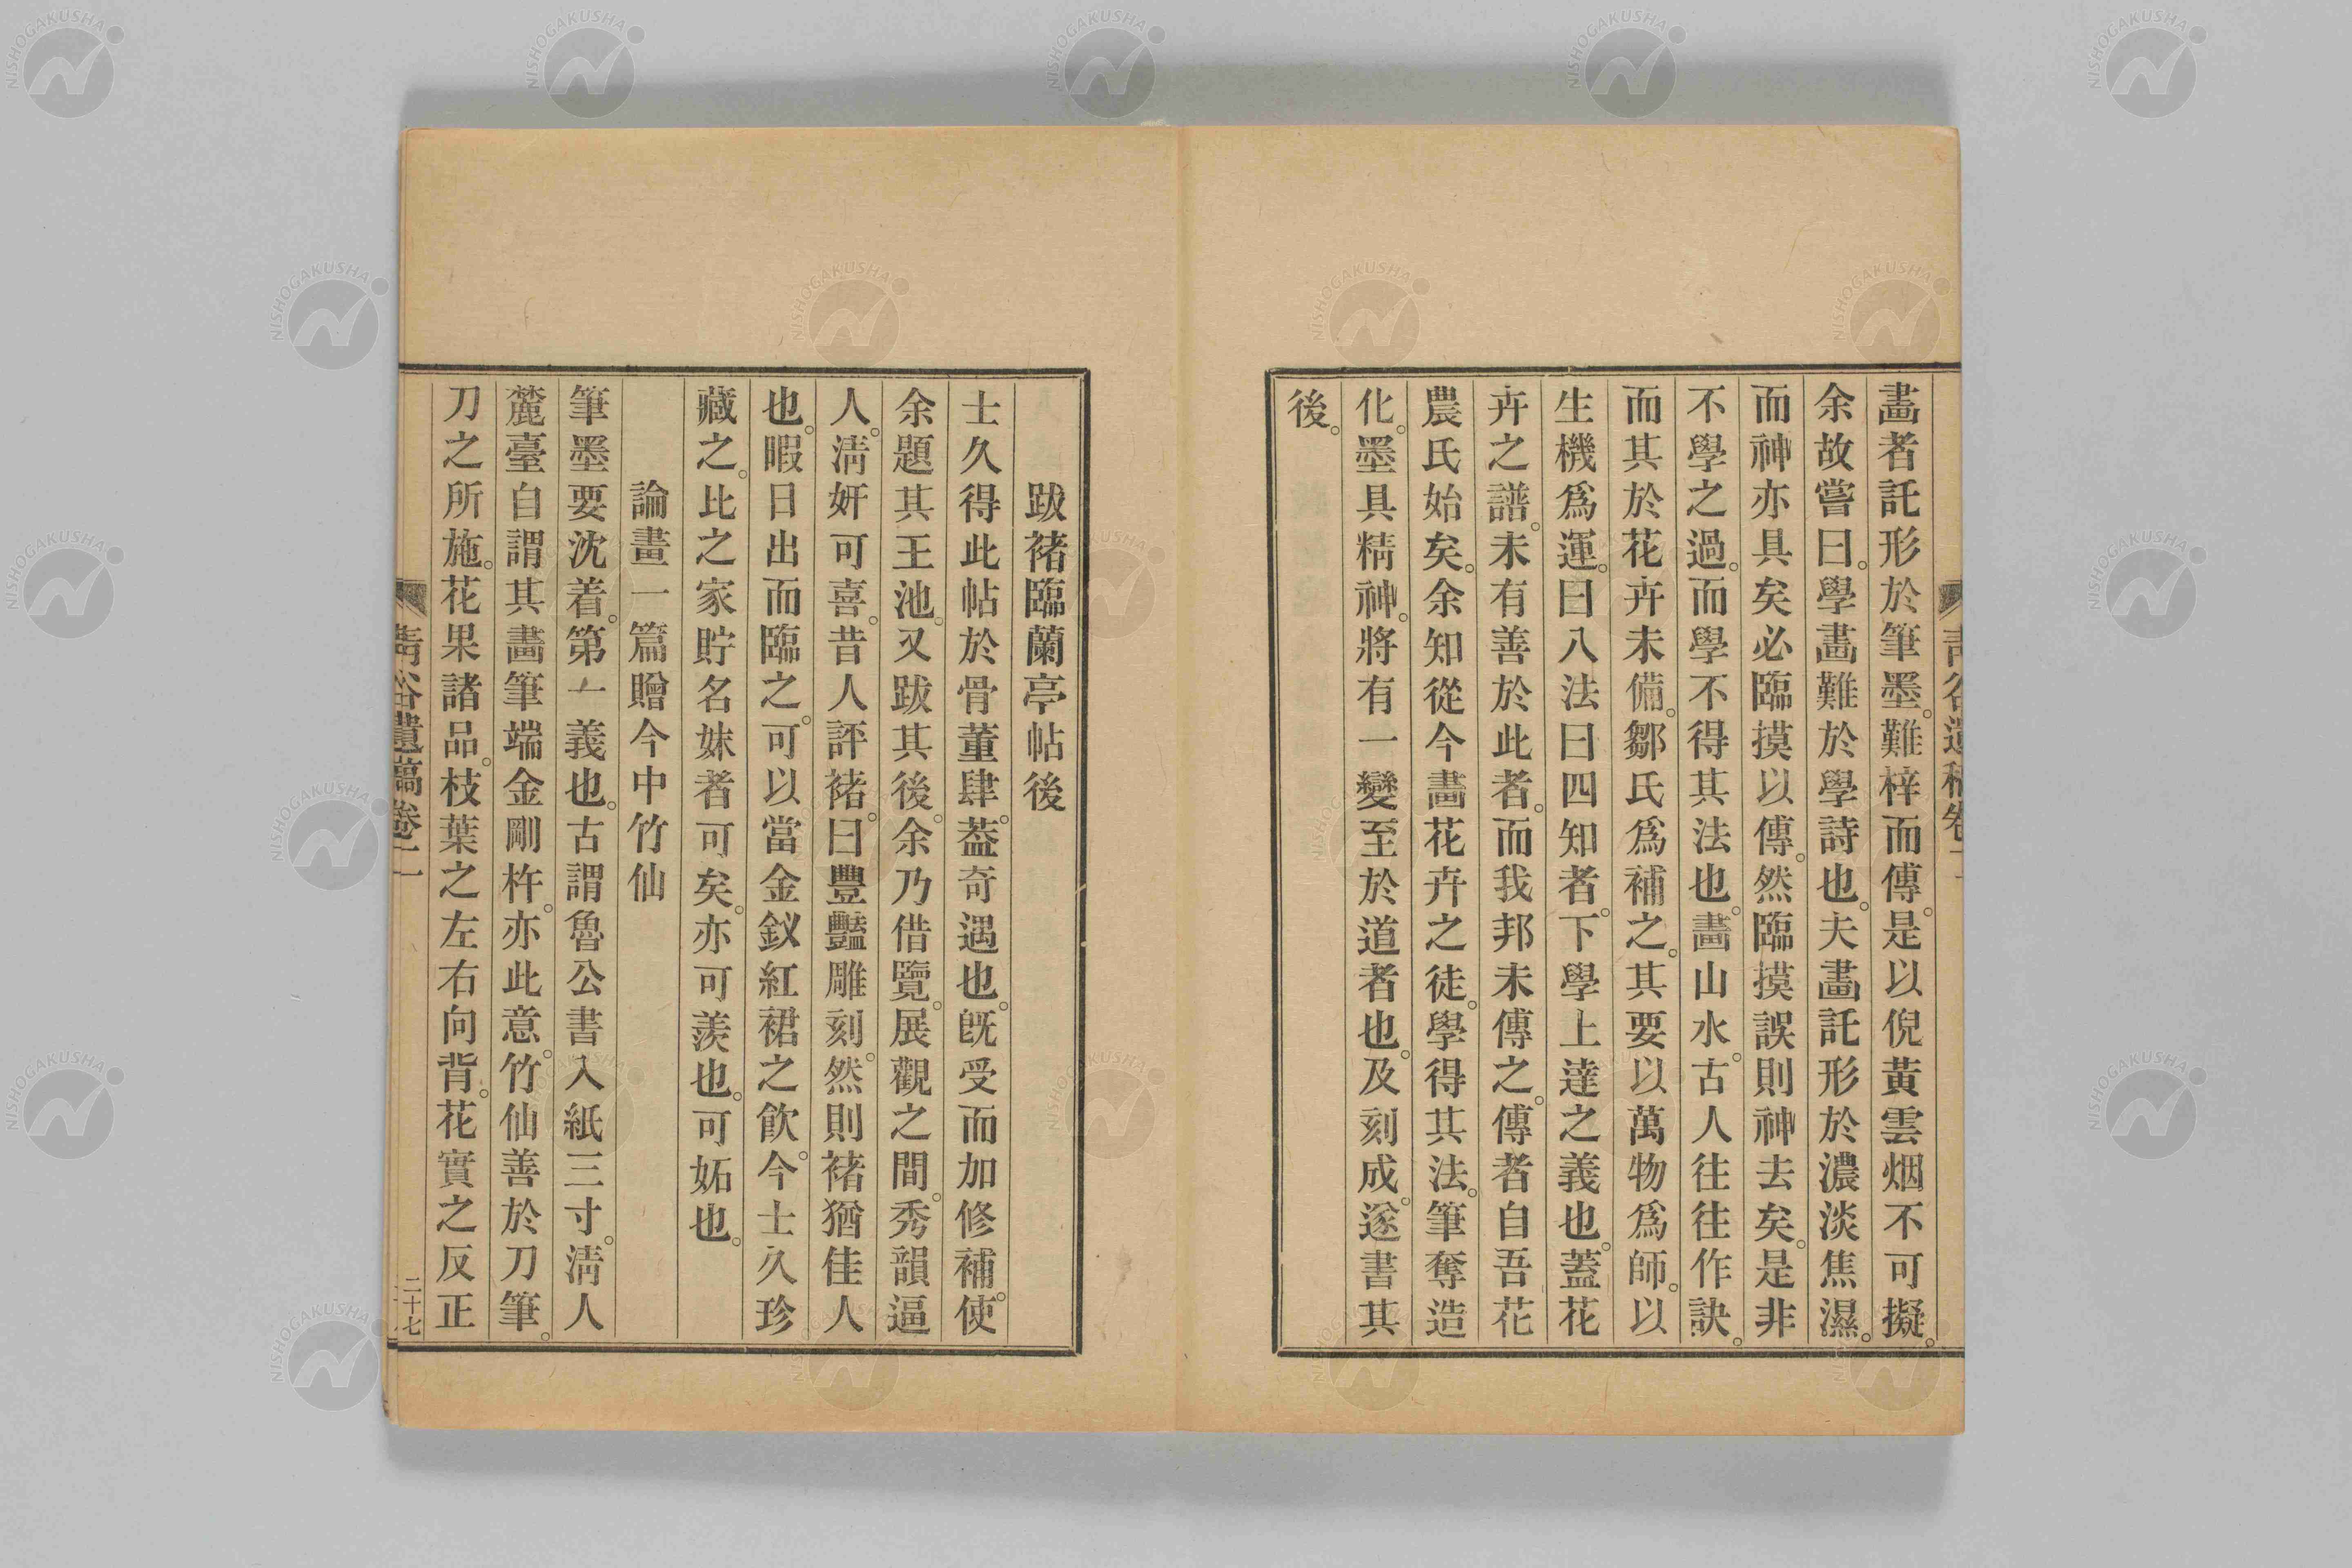 畫者託形於筆墨。難梓而傳。是以倪黃雲烟不可擬。
余故嘗曰。學畫難於學詩也。夫畫託形於濃淡焦濕。
而神亦具矣必臨摸以傳。然臨摸誤則神去矣。是非
不學之過。而學不得其法也。畫山水。古人往往作訣。
而其於花卉未備。鄒氏爲補之。其要以萬物爲師。以
生機爲運。曰八法曰四知者。下學上達之義也。蓋花
卉之譜。未有善於此者。而我邦未傳之。傳者自吾花
農氏始矣。余知從今畫花卉之徒。學得其法。筆奪造
化。墨具精神。將有一變至於道者也。及刻成。遂書其
後。
跋褚臨蘭亭帖後
士久得此帖於骨董肆。葢奇遇也。旣受而加修補。使
余題其王池。又跋其後。余乃借覽。展觀之間。秀韻逼
人。淸妍可喜。昔人評褚。曰豐豔雕刻。然則褚猶佳人
也。暇日出而臨之。可以當金釵紅裙之飮。今士久珍
藏之。比之家貯名妹者可矣。亦可羨也。可妬也。
論畫一篇贈今中竹仙
筆墨要沈着。第一義也。古謂魯公書入紙三寸。淸人
麓臺自謂其畫筆端金剛杵。亦此意。竹仙善於刀筆。
刀之所施。花果諸品。枝葉之左右向背。花實之反正
靑谷遺稿卷二
二十七